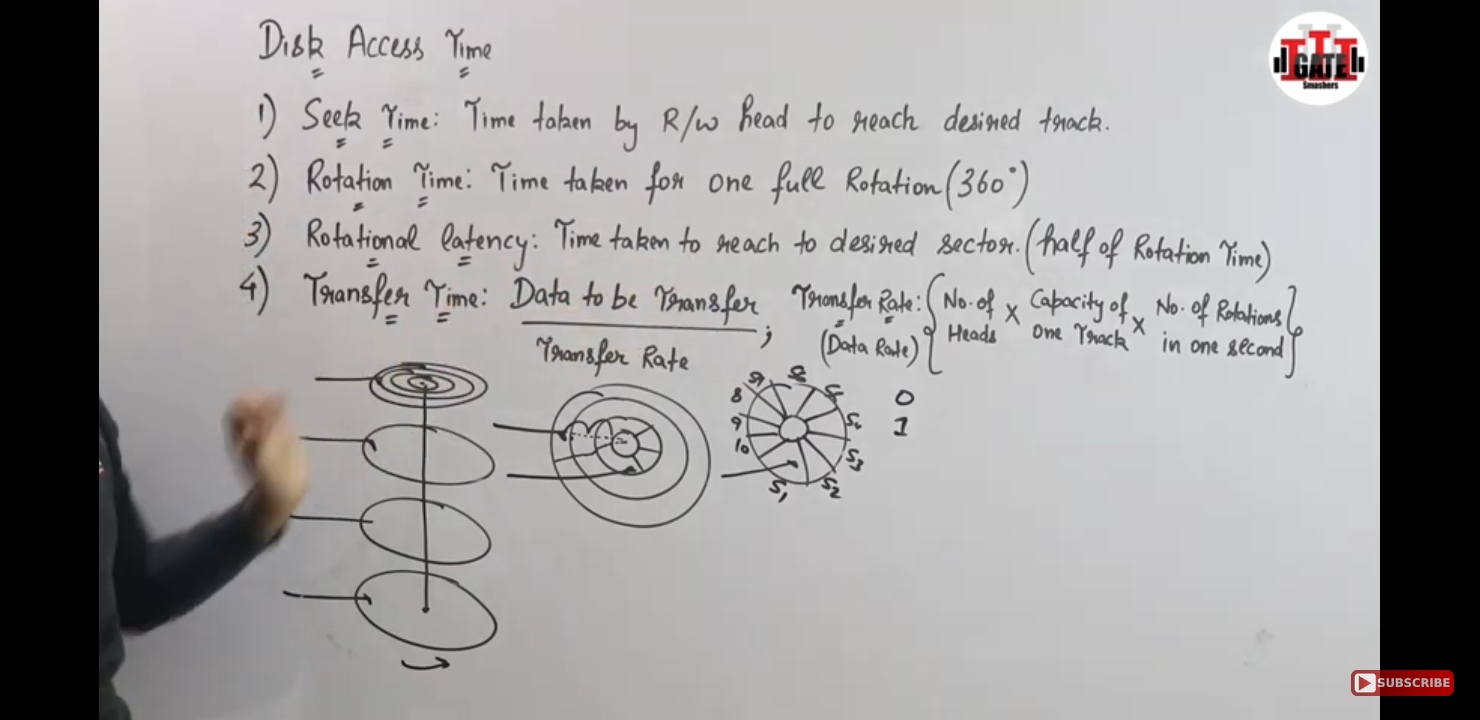 Disk Access Time
1) Seek Time: Time taken by R/W head to reach desired track.
2) Rotation Time: Time taken for one full Rotation (360°)
3) Rotational latency: Time taken to reach to desired sector. (half of Rotation Time)
4) Transfer Time: Data to be Transfer / Transfer Rate ; Transfer Rate: { No. of Heads x Capacity of one Track x No. of Rotations in one second }
(Data Rate)
8
9
10
S1
S2
S3
S4
0
1
GATE
Smashers
SUBSCRIBE